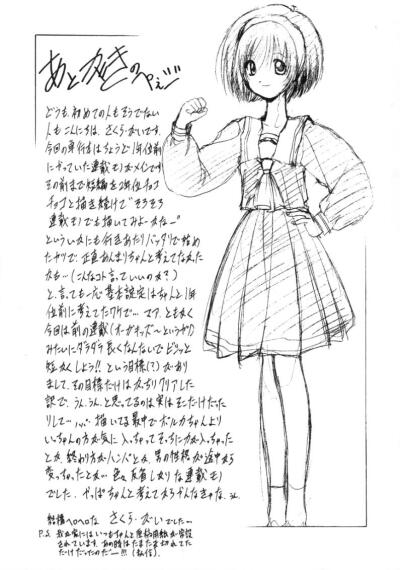 あとがきのぺぇじ
どうも、初めての人もそうでない
人もこんにちは、さくら・おいです。
今回の単行本はちょうど1年位前
にやっていた連載モノがメインです。
その前まで短編を2年位チョコ
チョコと描き続けて"そろそろ
連載モノでも描いてみよーかな"
といういかにも行きあたりバッタリで始め
たヤツで、正直あんまりちゃんと考えてなかった
かも…(こんなコト言っていいのか?)
と、言っても一応基本設定はちゃんと1年
位前に考えてたワケで…で、ア、ともかく
今回は前の連載(オーガキッズ〜というヤツ)
みたいにダラダラ長くなんないでビシッと
短かくしよう!!という目標(?)があり
まして、その目標だけはバッチリクリアした
訳で、うん、うん、と思ってるのは実はそこだけだった
りして…描いてる最中でポルカちゃんより
いっちゃんの方が気に入っちゃってそっちに力が入っちゃった
とか、終わり方がハンパとか、男の性格が途中から
変っちゃったとか…色々反省しきりな連載モノ
でした、やっぱちゃんと考えてからやんなきゃな、
結構ヘロヘロな さくら・おいでした…
P.S. 我が家にはいつもちゃんと原稿用紙が常設
されています。あの時はたまたま切れてた
だけだったのだー!!(私信)